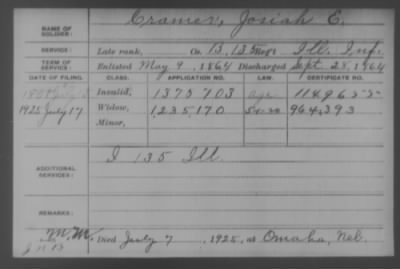 NAME OF SOLDIER: Cramer, Josiah E.
SERVICE: Late rank, Co. B, 135 Regt Ill. Inf.
TERM OF SERVICE: Enlisted May 9, 1864 Discharged Sept. 28, 1864
DATE OF FILING. CLASS. APPLICATION NO. LAW. CERTIFICATE NO.
Invalid, 1373703 age
1925 July 17 Widow, 1235,170 964,393
Minor,
ADDITIONAL SERVICES: I 135 Ill
REMARKS:
M.M. Died July 7, 1925, at Omaha, Neb.